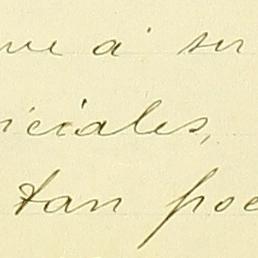 ve á su
iciales,
tan poc